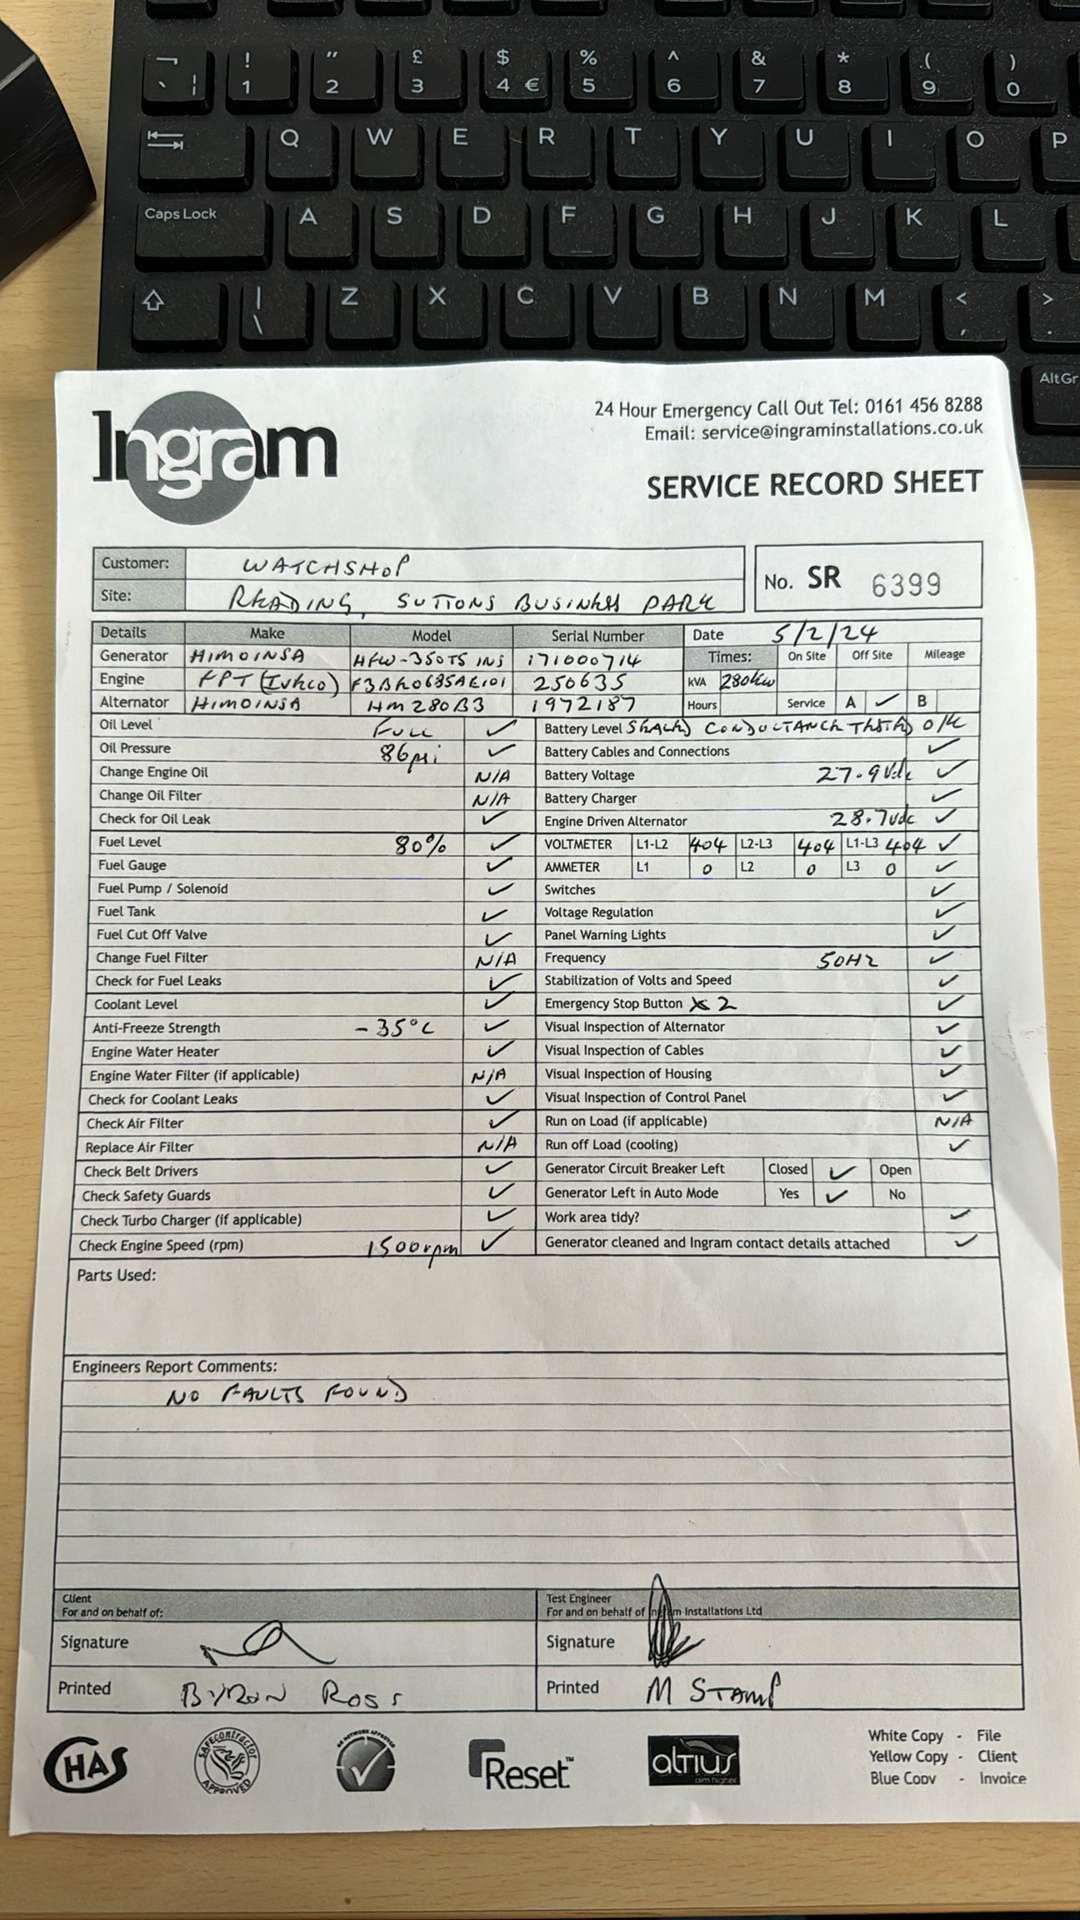 ¬ ! " £ $ % ^ & * ( )
` ¦ 1 2 3 4 € 5 6 7 8 9 0
Q W E R T Y U I O P
Caps Lock A S D F G H J K L
| \ Z X C V B N M < , > .
AltGr
Ingram
24 Hour Emergency Call Out Tel: 0161 456 8288
Email: service@ingraminstallations.co.uk
SERVICE RECORD SHEET
Customer: WATCHSHOP
Site: READING, SUTTONS BUSINESS PARK
No. SR 6399
Details Make Model Serial Number Date 5/2/24
Generator HIMOINSA HFW-350T5 INS 171000714 Times: On Site Off Site Mileage
Engine FPT (Iveco) 250635 kVA 280kw
Alternator HIMOINSA HM280B3 1972187 Hours Service A ✓ B
Oil Level FULL ✓ Battery Level SEALED CONDUCTANCE TESTED O/K
Oil Pressure 86psi ✓ Battery Cables and Connections ✓
Change Engine Oil N/A Battery Voltage 27.9Vdc ✓
Change Oil Filter N/A Battery Charger ✓
Check for Oil Leak ✓ Engine Driven Alternator 28.7vdc ✓
Fuel Level 80% ✓ VOLTMETER L1-L2 404 L2-L3 404 L1-L3 404 ✓
Fuel Gauge ✓ AMMETER L1 0 L2 0 L3 0 ✓
Fuel Pump / Solenoid ✓ Switches ✓
Fuel Tank ✓ Voltage Regulation ✓
Fuel Cut Off Valve ✓ Panel Warning Lights ✓
Change Fuel Filter N/A Frequency 50Hz ✓
Check for Fuel Leaks ✓ Stabilization of Volts and Speed ✓
Coolant Level ✓ Emergency Stop Button x2 ✓
Anti-Freeze Strength -35°C ✓ Visual Inspection of Alternator ✓
Engine Water Heater ✓ Visual Inspection of Cables ✓
Engine Water Filter (if applicable) N/A Visual Inspection of Housing ✓
Check for Coolant Leaks ✓ Visual Inspection of Control Panel ✓
Check Air Filter ✓ Run on Load (if applicable) N/A
Replace Air Filter N/A Run off Load (cooling) ✓
Check Belt Drivers ✓ Generator Circuit Breaker Left Closed ✓ Open
Check Safety Guards ✓ Generator Left in Auto Mode Yes ✓ No
Check Turbo Charger (if applicable) ✓ Work area tidy? ✓
Check Engine Speed (rpm) 1500rpm ✓ Generator cleaned and Ingram contact details attached ✓
Parts Used:
Engineers Report Comments:
NO FAULTS FOUND
Client
For and on behalf of:
Signature
Printed BYRON ROSS
Test Engineer
For and on behalf of Ingram Installations Ltd
Signature
Printed M STAMP
CHAS
SAFEcontractor APPROVED
Reset™
altius
aim higher
White Copy - File
Yellow Copy - Client
Blue Copy - Invoice